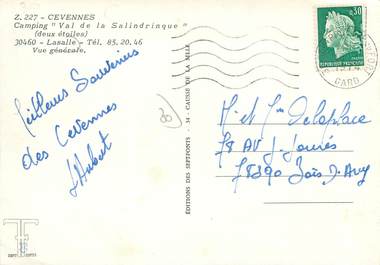 Z. 227 - CEVENNES
Camping "Val de la Salindrinque"
(deux étoiles)
30460 - Lasalle - Tél. 83.20.46
Vue générale.
Meilleurs Souvenirs
des Cevennes
Hubert
ÉDITIONS DES SEPTPONTS - 34 - CAUSSE DE LA SELLE
30
0,30
RÉPUBLIQUE FRANÇAISE
GARD
M et Me Delaplace
78 AV J. Jaurés
78390 Bois d'Arcy